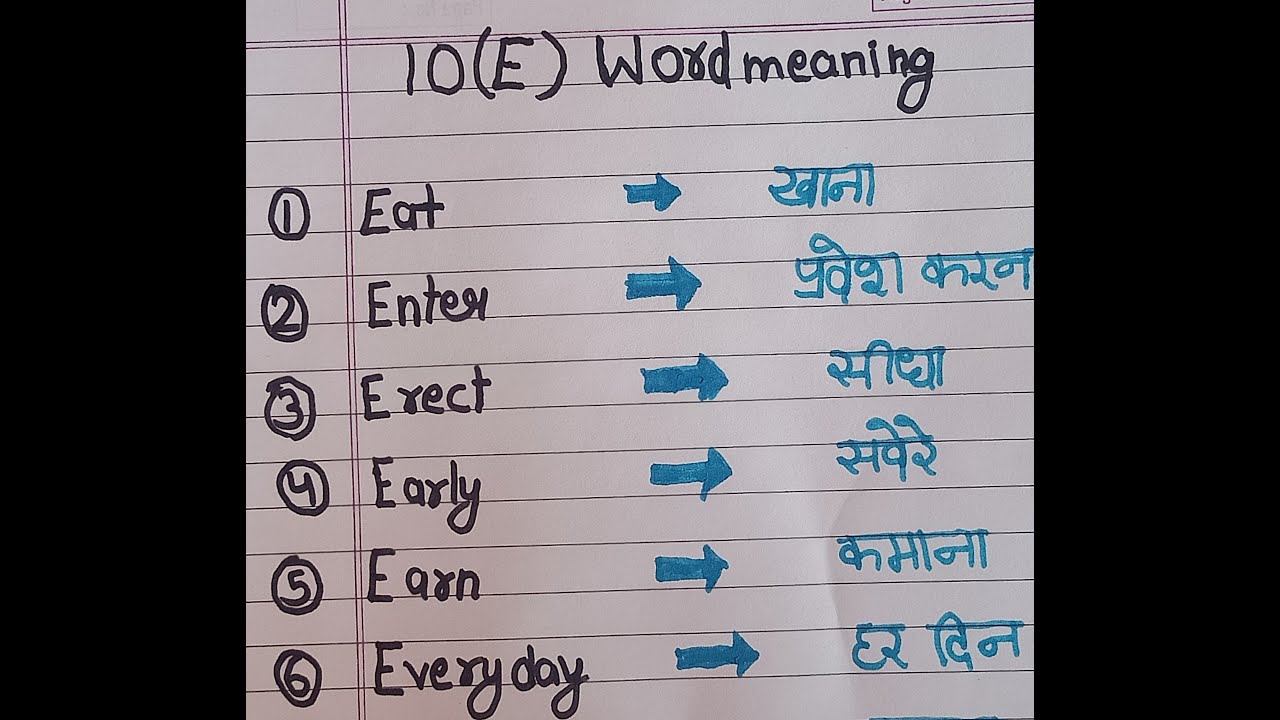 10(E) Word meaning
① Eat → खाना
② Enter → प्रवेश करन
③ Erect → सीधा
④ Early → सवेरे
⑤ Earn → कमाना
⑥ Everyday → हर दिन